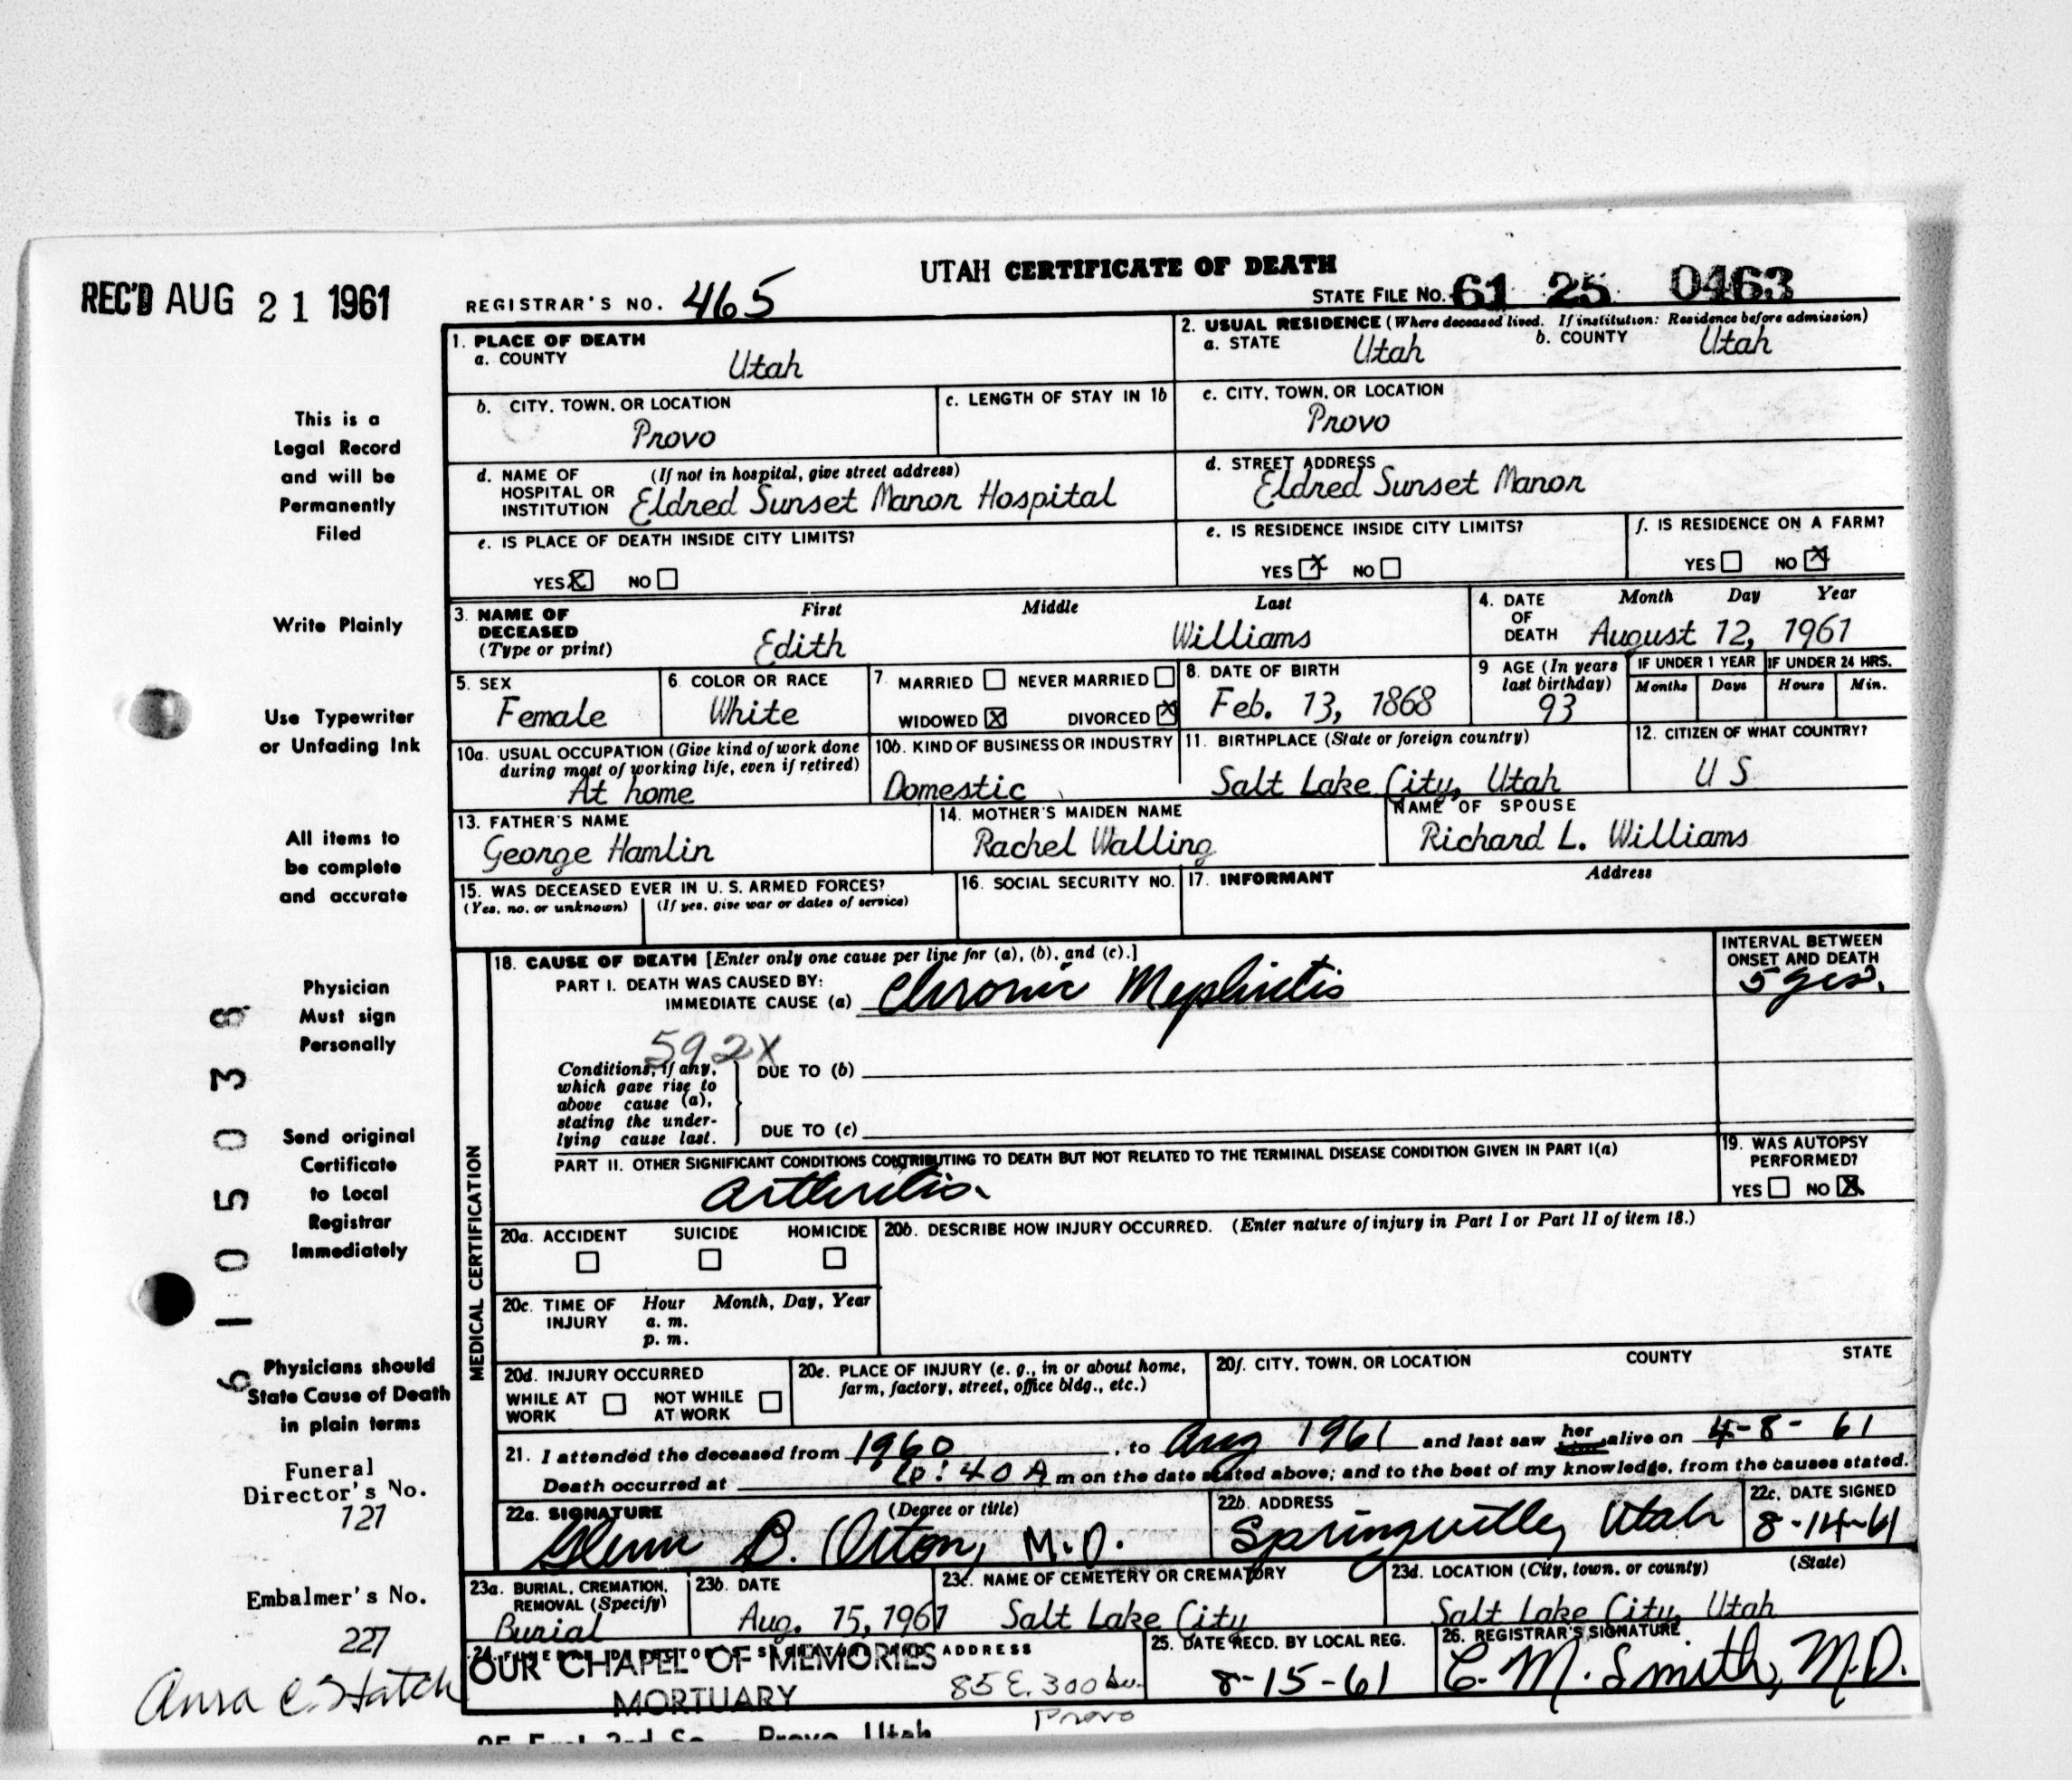 UTAH CERTIFICATE OF DEATH
REC'D AUG 21 1961
REGISTRAR'S NO. 465
STATE FILE NO. 61 25 0463
1. PLACE OF DEATH
a. COUNTY
Utah
2. USUAL RESIDENCE (Where deceased lived. If institution: Residence before admission)
a. STATE Utah b. COUNTY Utah
b. CITY, TOWN, OR LOCATION
Provo
c. LENGTH OF STAY IN 1b
c. CITY, TOWN, OR LOCATION
Provo
d. NAME OF HOSPITAL OR INSTITUTION (If not in hospital, give street address)
Eldred Sunset Manor Hospital
d. STREET ADDRESS
Eldred Sunset Manor
e. IS PLACE OF DEATH INSIDE CITY LIMITS?
YES X NO
e. IS RESIDENCE INSIDE CITY LIMITS?
YES X NO
f. IS RESIDENCE ON A FARM?
YES NO X
3. NAME OF DECEASED (Type or print)
First Middle Last
Edith Williams
4. DATE OF DEATH
Month Day Year
August 12, 1961
5. SEX
Female
6. COLOR OR RACE
White
7. MARRIED NEVER MARRIED
WIDOWED X DIVORCED X
8. DATE OF BIRTH
Feb. 13, 1868
9 AGE (In years last birthday)
93
IF UNDER 1 YEAR
Months Days
IF UNDER 24 HRS.
Hours Min.
10a. USUAL OCCUPATION (Give kind of work done during most of working life, even if retired)
At home
10b. KIND OF BUSINESS OR INDUSTRY
Domestic
11. BIRTHPLACE (State or foreign country)
Salt Lake City, Utah
12. CITIZEN OF WHAT COUNTRY?
U S
13. FATHER'S NAME
George Hamlin
14. MOTHER'S MAIDEN NAME
Rachel Walling
NAME OF SPOUSE
Richard L. Williams
15. WAS DECEASED EVER IN U. S. ARMED FORCES?
(Yes, no, or unknown) (If yes, give war or dates of service)
16. SOCIAL SECURITY NO.
17. INFORMANT Address
MEDICAL CERTIFICATION
18. CAUSE OF DEATH [Enter only one cause per line for (a), (b), and (c).]
PART I. DEATH WAS CAUSED BY:
IMMEDIATE CAUSE (a) Chronic Nephritis
INTERVAL BETWEEN ONSET AND DEATH
5 yrs.
592X
Conditions, if any, which gave rise to above cause (a), stating the underlying cause last.
DUE TO (b)
DUE TO (c)
PART II. OTHER SIGNIFICANT CONDITIONS CONTRIBUTING TO DEATH BUT NOT RELATED TO THE TERMINAL DISEASE CONDITION GIVEN IN PART I(a)
Arthritis
19. WAS AUTOPSY PERFORMED?
YES NO X
20a. ACCIDENT SUICIDE HOMICIDE
20b. DESCRIBE HOW INJURY OCCURRED. (Enter nature of injury in Part I or Part II of item 18.)
20c. TIME OF INJURY Hour Month, Day, Year
a. m.
p. m.
20d. INJURY OCCURRED
WHILE AT WORK NOT WHILE AT WORK
20e. PLACE OF INJURY (e. g., in or about home, farm, factory, street, office bldg., etc.)
20f. CITY, TOWN, OR LOCATION COUNTY STATE
21. I attended the deceased from 1960, to Aug 1961 and last saw her alive on 4-8-61
Death occurred at 6:40 A m on the date stated above; and to the best of my knowledge, from the causes stated.
22a. SIGNATURE (Degree or title)
Glenn B. Orton, M.D.
22b. ADDRESS
Springville, Utah
22c. DATE SIGNED
8-14-61
23a. BURIAL, CREMATION, REMOVAL (Specify)
Burial
23b. DATE
Aug. 15, 1961
23c. NAME OF CEMETERY OR CREMATORY
Salt Lake City
23d. LOCATION (City, town, or county) (State)
Salt Lake City, Utah
24. ADDRESS
OUR CHAPEL OF MEMORIES
MORTUARY
85 E. 300 So.
Provo
Provo, Utah
25. DATE RECD. BY LOCAL REG.
8-15-61
26. REGISTRAR'S SIGNATURE
C. M. Smith, M.D.
This is a
Legal Record
and will be
Permanently
Filed
Write Plainly
Use Typewriter
or Unfading Ink
All items to
be complete
and accurate
Physician
Must sign
Personally
Send original
Certificate
to Local
Registrar
Immediately
Physicians should
State Cause of Death
in plain terms
Funeral
Director's No.
121
Embalmer's No.
227
6 1 0 5 0 3 8